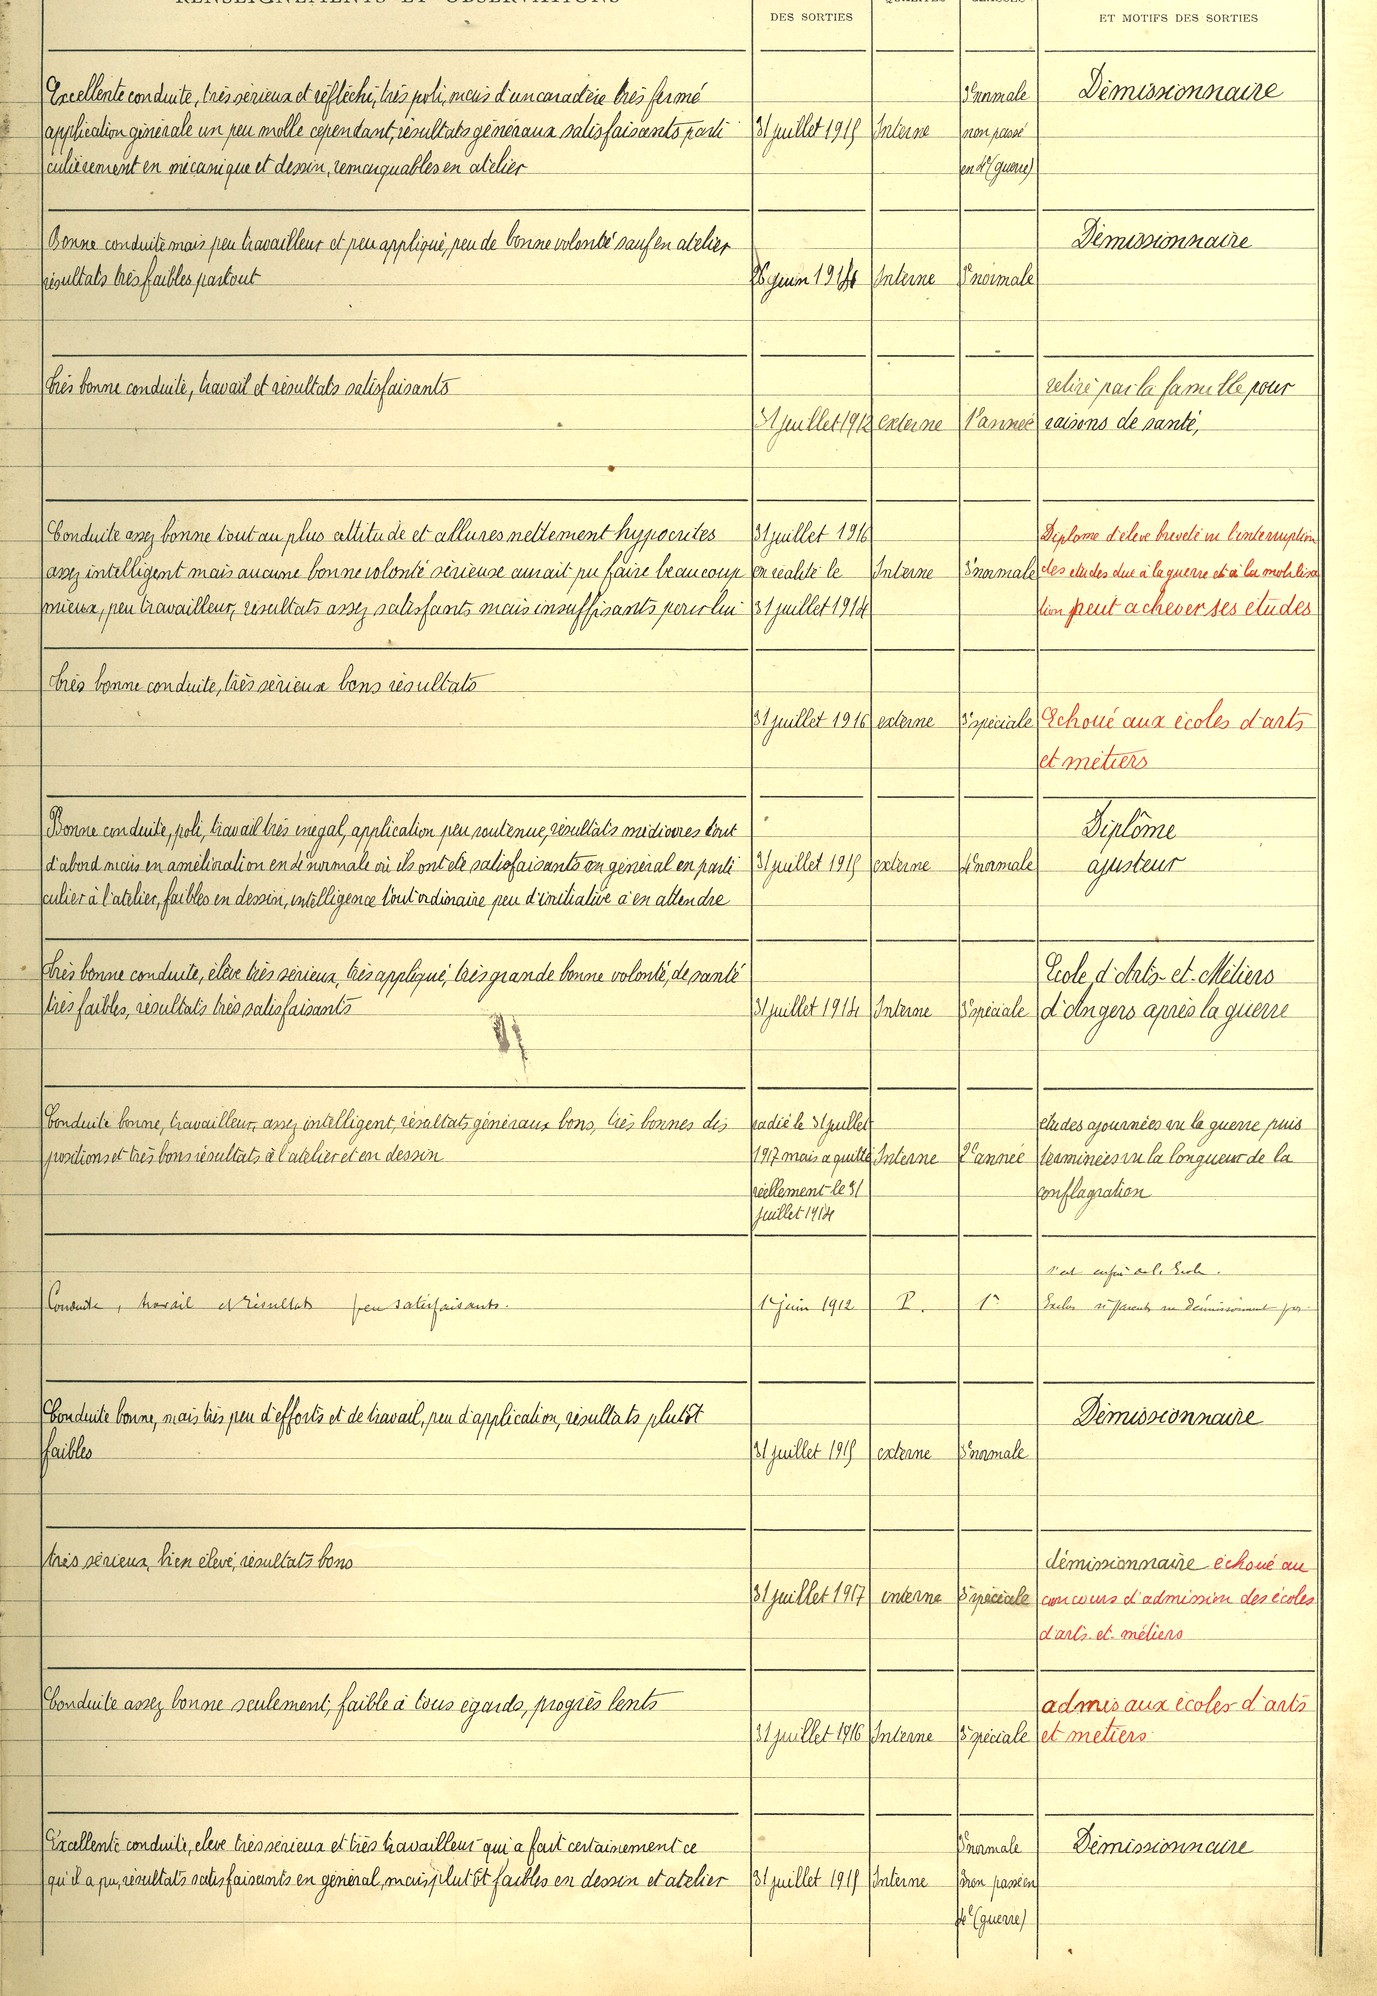 RENSEIGNEMENTS ET OBSERVATIONS
DES SORTIES
QUALITÉS
CLASSES
ET MOTIFS DES SORTIES
Excellente conduite, très sérieux et réfléchi, très poli, mais d'un caractère très fermé
application générale un peu molle cependant, résultats généraux satisfaisants parti
culièrement en mécanique et dessin, remarquables en atelier
31 juillet 1915
Interne
3e normale
non passé
en 4e (guerre)
Démissionnaire
Bonne conduite mais peu travailleur et peu appliqué, peu de bonne volonté sauf en atelier
résultats très faibles partout
26 juin 1914
Interne
normale
Démissionnaire
très bonne conduite, travail et résultats satisfaisants
31 juillet 1912
externe
1e année
retiré par la famille pour
raisons de santé,
Conduite assez bonne tout au plus attitude et allures nettement hypocrites
assez intelligent mais aucune bonne volonté sérieuse aurait pu faire beaucoup
mieux, peu travailleur, résultats assez satisfants mais insuffisants pour lui
31 juillet 1916
en réalité le
31 juillet 1914
Interne
3e normale
Diplome d'élève breveté vu l'interruption
des etudes due à la guerre et à la mobilisa
tion peut achever ses études
très bonne conduite, très sérieux bons résultats
31 juillet 1916
externe
3e spéciale
Echoué aux écoles d'arts
et métiers
Bonne conduite, poli, travail très inégal, application peu soutenue, résultats médiocres tout
d'abord mais en amélioration en 4e normale où ils ont été satisfaisants en général en parti
culier à l'atelier, faibles en dessin, intelligence tout ordinaire peu d'initiative à en attendre
31 juillet 1915
externe
4e normale
Diplôme
ajusteur
très bonne conduite, élève très sérieux, très appliqué, très grande bonne volonté, de santé
très faibles, résultats très satisfaisants
31 juillet 1914
Interne
3e spéciale
Ecole d'Arts-et-Métiers
d'Angers après la guerre
Conduite bonne, travailleur, assez intelligent, résultats généraux bons, très bonnes dis
positions et très bons résultats à l'atelier et en dessin
radié le 31 juillet
1917 mais a quitté
réellement le 31
juillet 1914
Interne
2e année
etudes ajournées vu la guerre puis
terminées vu la longueur de la
conflagration
Conduite, travail et résultats peu satisfaisants.
1er juin 1912
P.
1re
s'est enfui de l'Ecole.
Exclu
Conduite bonne, mais très peu d'efforts et de travail, peu d'application, résultats plutôt
faibles
31 juillet 1915
externe
3e normale
Démissionnaire
très sérieux, bien élevé, résultats bons
31 juillet 1917
interne
3e spéciale
démissionnaire échoué au
concours d'admission des écoles
d'arts et métiers
Conduite assez bonne seulement, faible à tous égards, progrès lents
31 juillet 1916
Interne
3e spéciale
admis aux écoles d'arts
et metiers
Excellente conduite, eleve très sérieux et très travailleur qui a fait certainement ce
qu'il a pu, résultats satisfaisants en général, mais plutôt faibles en dessin et atelier
31 juillet 1915
Interne
3e normale
non passé en
4e (guerre)
Démissionnaire